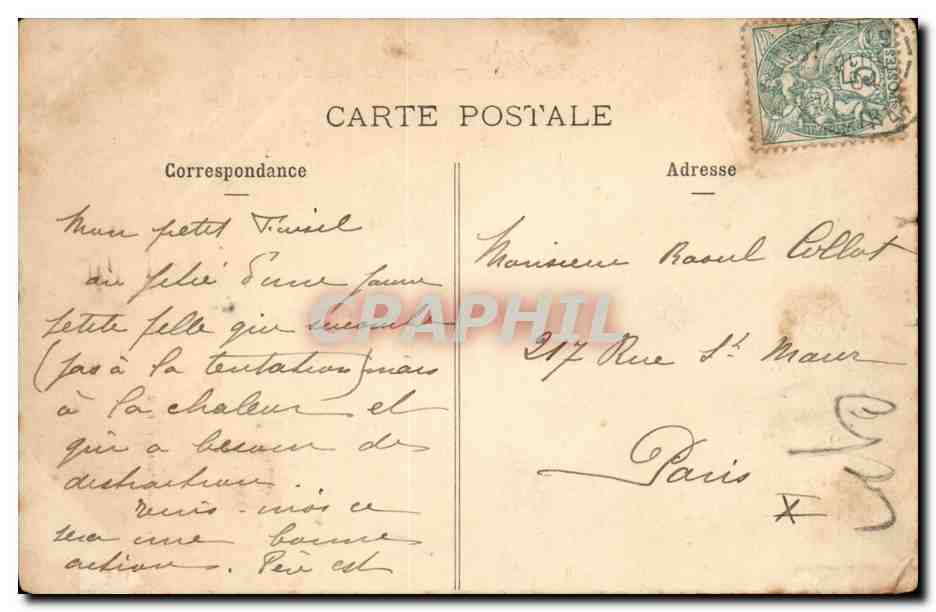 CARTE POSTALE
Correspondance
Mon petit
aie pitié d'une pauvre
petite fille qui succombe
(pas à la tentation) mais
à la chaleur et
qui a besoin de
distraction.
écris-moi ce
sera une bonne
action. Père est
Adresse
Monsieur Raoul Collot
217 Rue St Maur
Paris
X
5c
POSTES
CPAPHIL